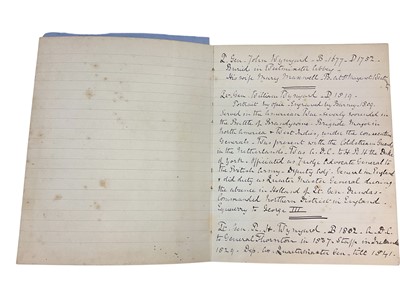 Lt. Gen. John Wynyard. B. 1677. D. 1752.
Buried in Westminster Abbey.
His wife Mary Maxwell.
Lt. Gen. William Wynyard. D. 1819.
Portrait by Opie. Engraved by 1809.
Served in the American War. Severely wounded in
the Battle of Brandywine. Brigade Major in
North America & West Indies, under the
Generals. Was present with the Coldstream Guards
in the Netherlands. Was A.D.C. to H.R.H. the Duke
of York. Officiated as Judge Advocate General to
the British Army. Deputy Adj. General in England
& did duty as Quarter Master General during
the absence in Holland of Lt. Gen. Dundas.
Commanded Northern District in England.
Equerry to George III.
Lt. Gen. R. H. Wynyard. B. 1802. A.D.C.
to General Thornton in 1827. Staff in Ireland
1829. Dep. As. Quartermaster Gen. till 1841.